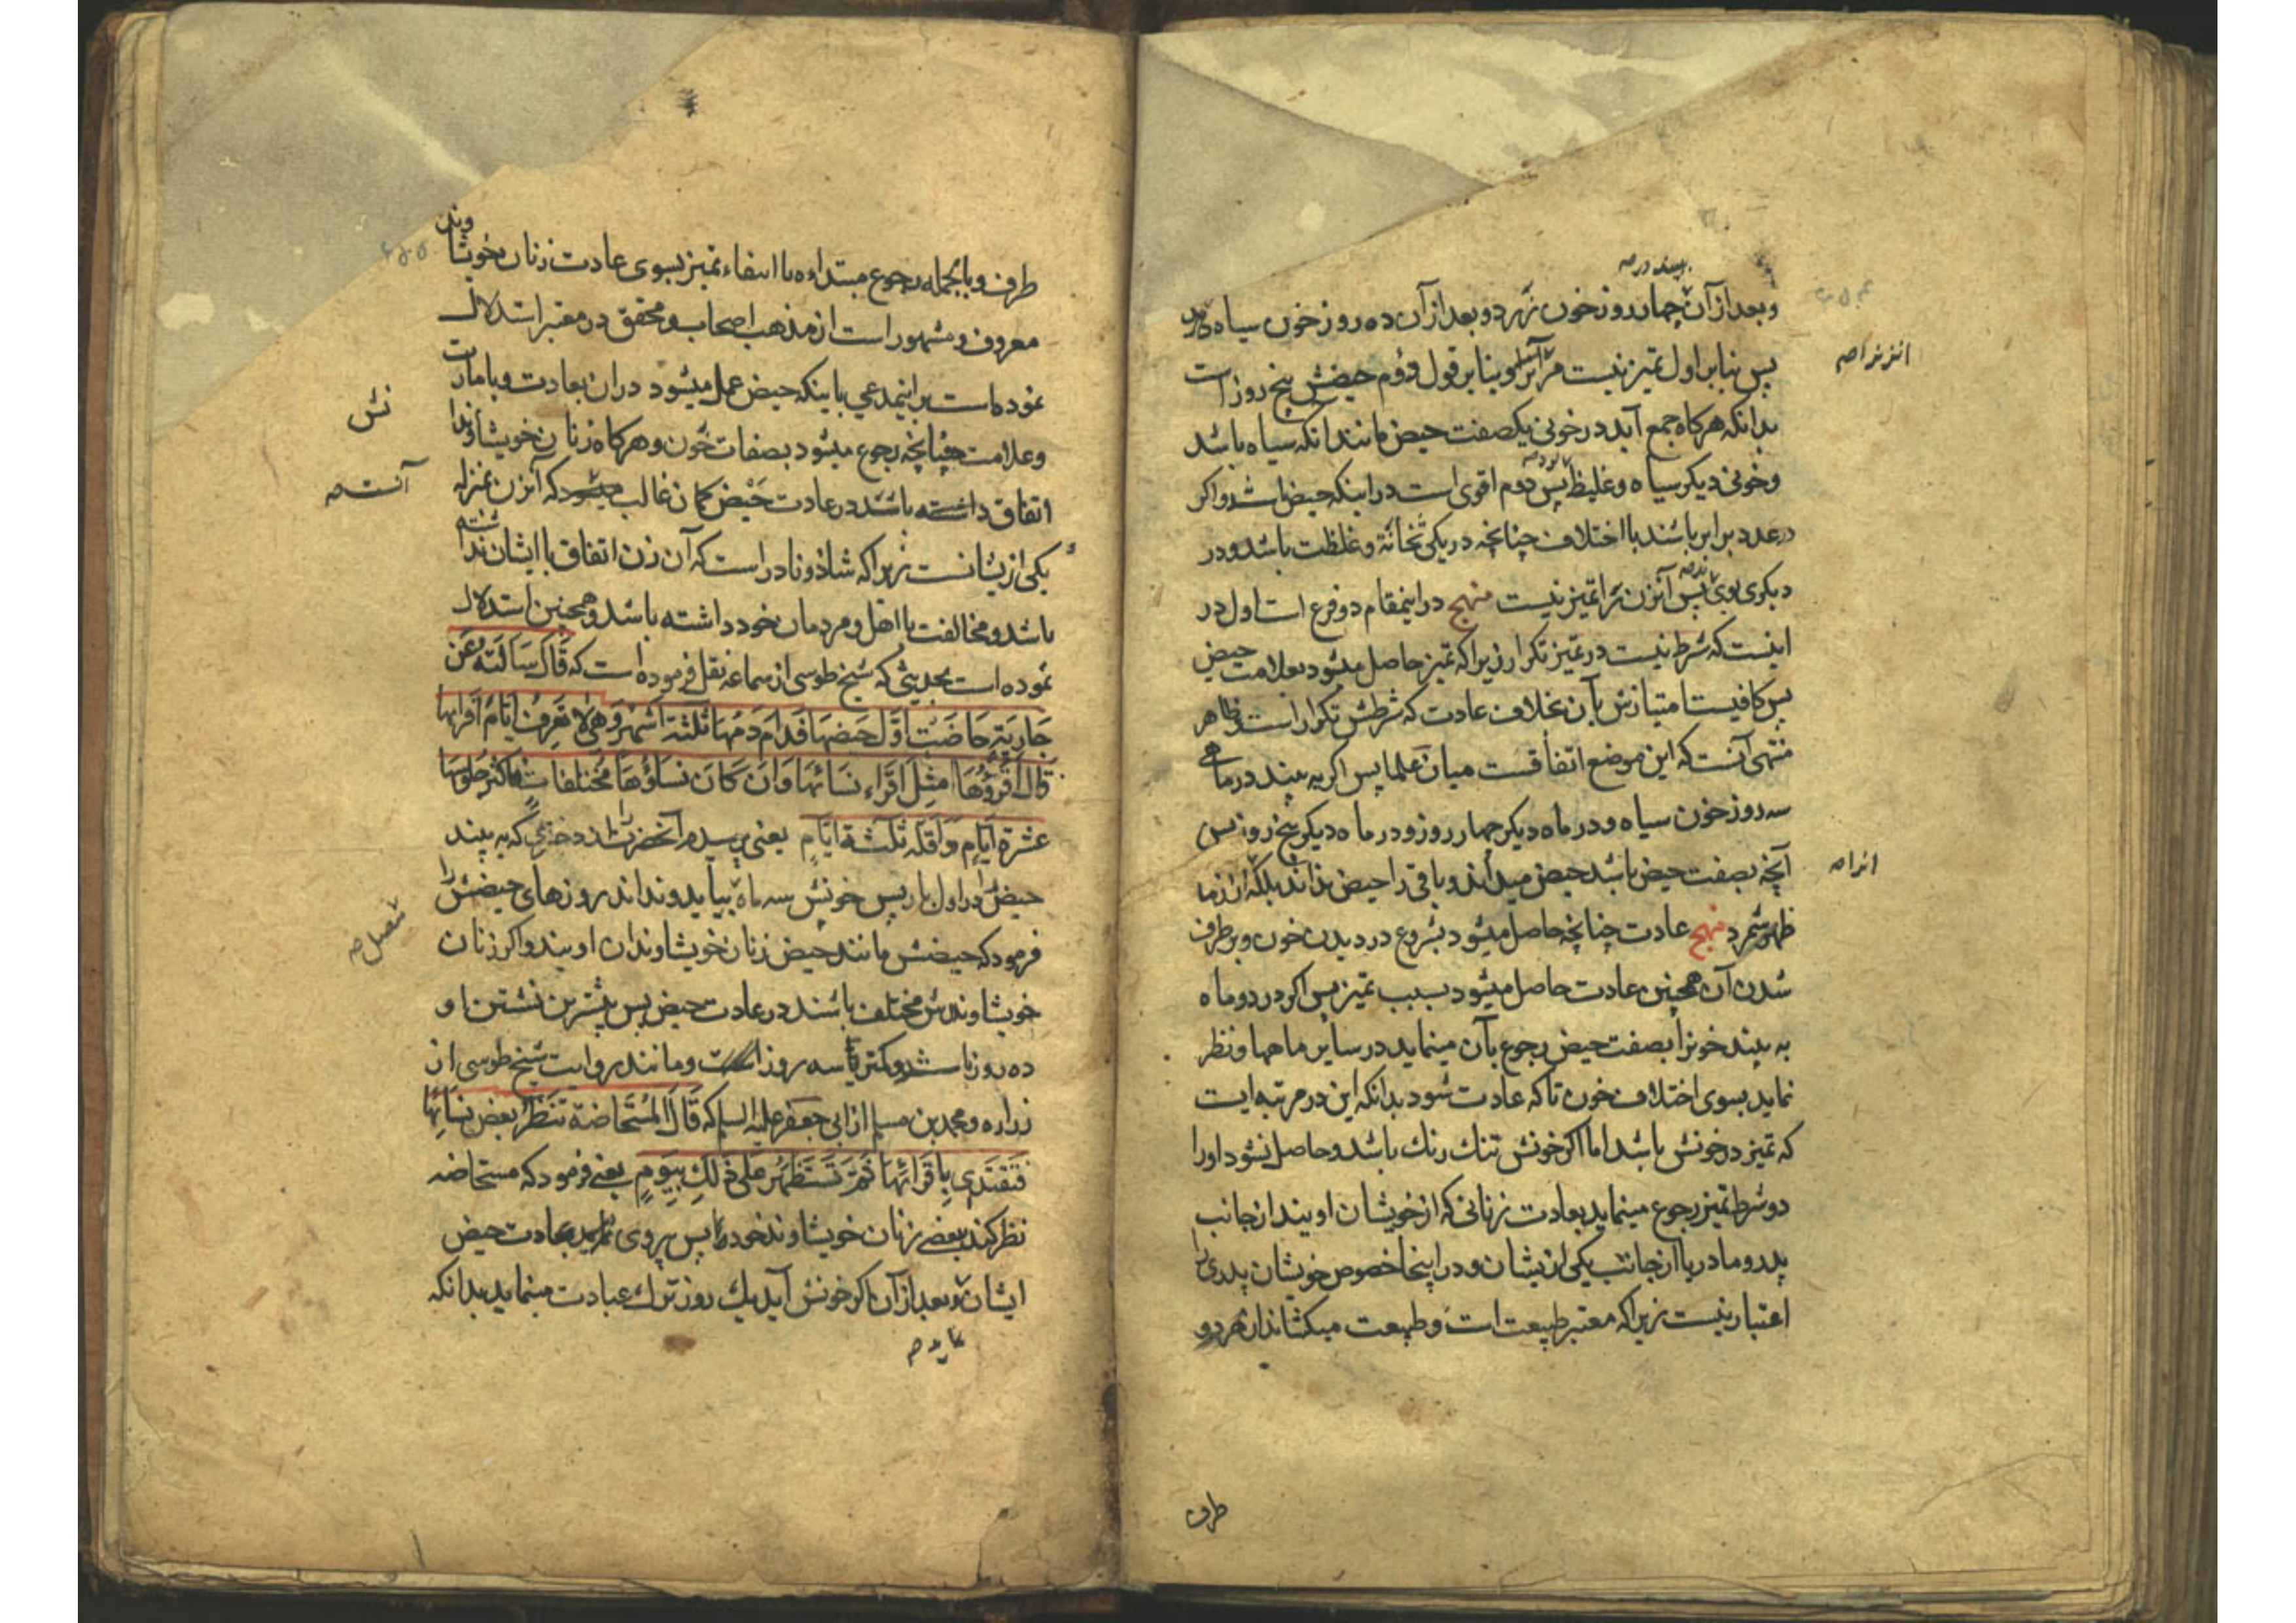 وبعد از آن چهار روز خون زرد و بعد از آن ده روز خون سیاه
پس بنابر اول تمیز نیست مر آنزنرا و بنابر قول دوم حیضش پنج روز است
بدانکه هرکاه جمع آید در خونی یکصفت حیض مانند آنکه سیاه باشد
وخونی دیکر سیاه وغلیظ پس دوم اقوی است در اینکه حیض باشد و اکر
در عدد برابر باشند با اختلاف چنانچه در یکی ثخانة وغلظت باشد و در
دیکری بوی پس آنزن را تمیز نیست منهج در اینمقام دو فرع است اول در
اینست که شرط نیست در تمیز تکرار زیرا که تمیز حاصل میشود بعلامت حیض
پس کافیست امتیازش بآن بخلاف عادت که شرطش تکرار است و ظاهر
منتهی آنست که این موضع اتفاقست میان علما پس اکر به بیند در ماهی
سه روز خون سیاه و در ماه دیکر چهار روز و در ماه دیکر پنج روز پس
آنچه بصفت حیض باشد حیض میداند و باقی را حیض نداند بلکه
طهر شمرد منهج عادت چنانچه حاصل میشود بشروع در دیدن خون و برطرف
شدن آن همچنین عادت حاصل میشود بسبب تمیز پس اکر در دو ماه
به بیند خونرا بصفت حیض رجوع بآن مینماید در سایر ماهها و نظر
نماید بسوی اختلاف خون تاکه عادت شود بدانکه این در مرتبه ایست
که تمیز در خونش باشد اما اکر خونش تنك رنك باشد و حاصل نشود او را
دو شرط تمیز رجوع مینماید بعادت زنانی که از خویشان اویند از جانب
پدر و مادر یا از جانب یکی از یشان و در اینجا خصوص خویشان پدری را
اعتبار نیست زیرا که معتبر طبیعت است و طبیعت میکشاند از هر دو
طرف
انزنراصه
طرف و بالجمله رجوع مبتداءه با انتفاء تمیز بسوی عادت زنان خویشاوند
معروف و مشهور است از مذهب اصحاب و محقق در معتبر استدلال
نموده است بر اینمدعی باینکه حیض عمل میشود در ان بعادت و بامارت
وعلامت چنانچه رجوع میشود بصفات خون و هرکاه زنان خویشاوند
اتفاق داشته باشند در عادت حیض کمان غالب میشود که آنزن بمنزله
یکی از یشانست زیرا که شاذ و نادر است که آن زن اتفاق با ایشان نداشته
باشد و مخالفت با اهل و مردمان خود داشته باشد و همچنین استدلال
نموده است بحدیثی که شیخ طوسی از سماعه نقل فرموده است که قَالَ سَاَلْتَهُ عَن
جَارِیَةٍ حَاضَتْ اَوَّلَ حَیضِهَا فَدَامَ دَمُهَا ثَلٰثَةَ اَشْهُرٍ وَهِیَ لَا تَعرِفُ اَیَّامَ اَقرَائِهَا
قَالَ اَقرَؤُهَا مِثْلُ اَقرَاءِ نِسَائِهَا وَاِن کَانَ نِسَاؤُهَا مُختَلِفَاتٍ فَاَکثَرُ جُلُوسِهَا
عَشَرَةُ اَیَّامٍ وَاَقَلُّهُ ثَلٰثَةُ اَیَّامٍ یعنی پرسیدم آنحضرت را از دختری که به بیند
حیض را در اول بار پس خونش سه ماه بیاید و نداند روزهای حیضش را
فرمود که حیضش مانند حیض زنان خویشاوندان اویند و اکر زنان
خویشاوندش مختلف باشند در عادت حیض پس بیشترین نشستن او
ده روز باشد و کمتر سه روز است و مانند روایت شیخ طوسی از
زراره و محمد بن مسلم از ابی جعفر علیه السلم که قَالَ المُستَحَاضَةُ تَنْظُرُ بَعْضَ نِسَائِهَا
فَتَقتَدِی بِاَقرَائِهَا ثُمَّ تَستَظهِرُ عَلیٰ ذٰلِكَ بِیَومٍ یعنی فرمود که مستحاضه
نظر کند ببعضی زنان خویشاوند خود را پس پیروی نماید بعادت حیض
ایشان و بعد از آن اکر خونش آید یك روز ترك عبادت مینماید بدانکه